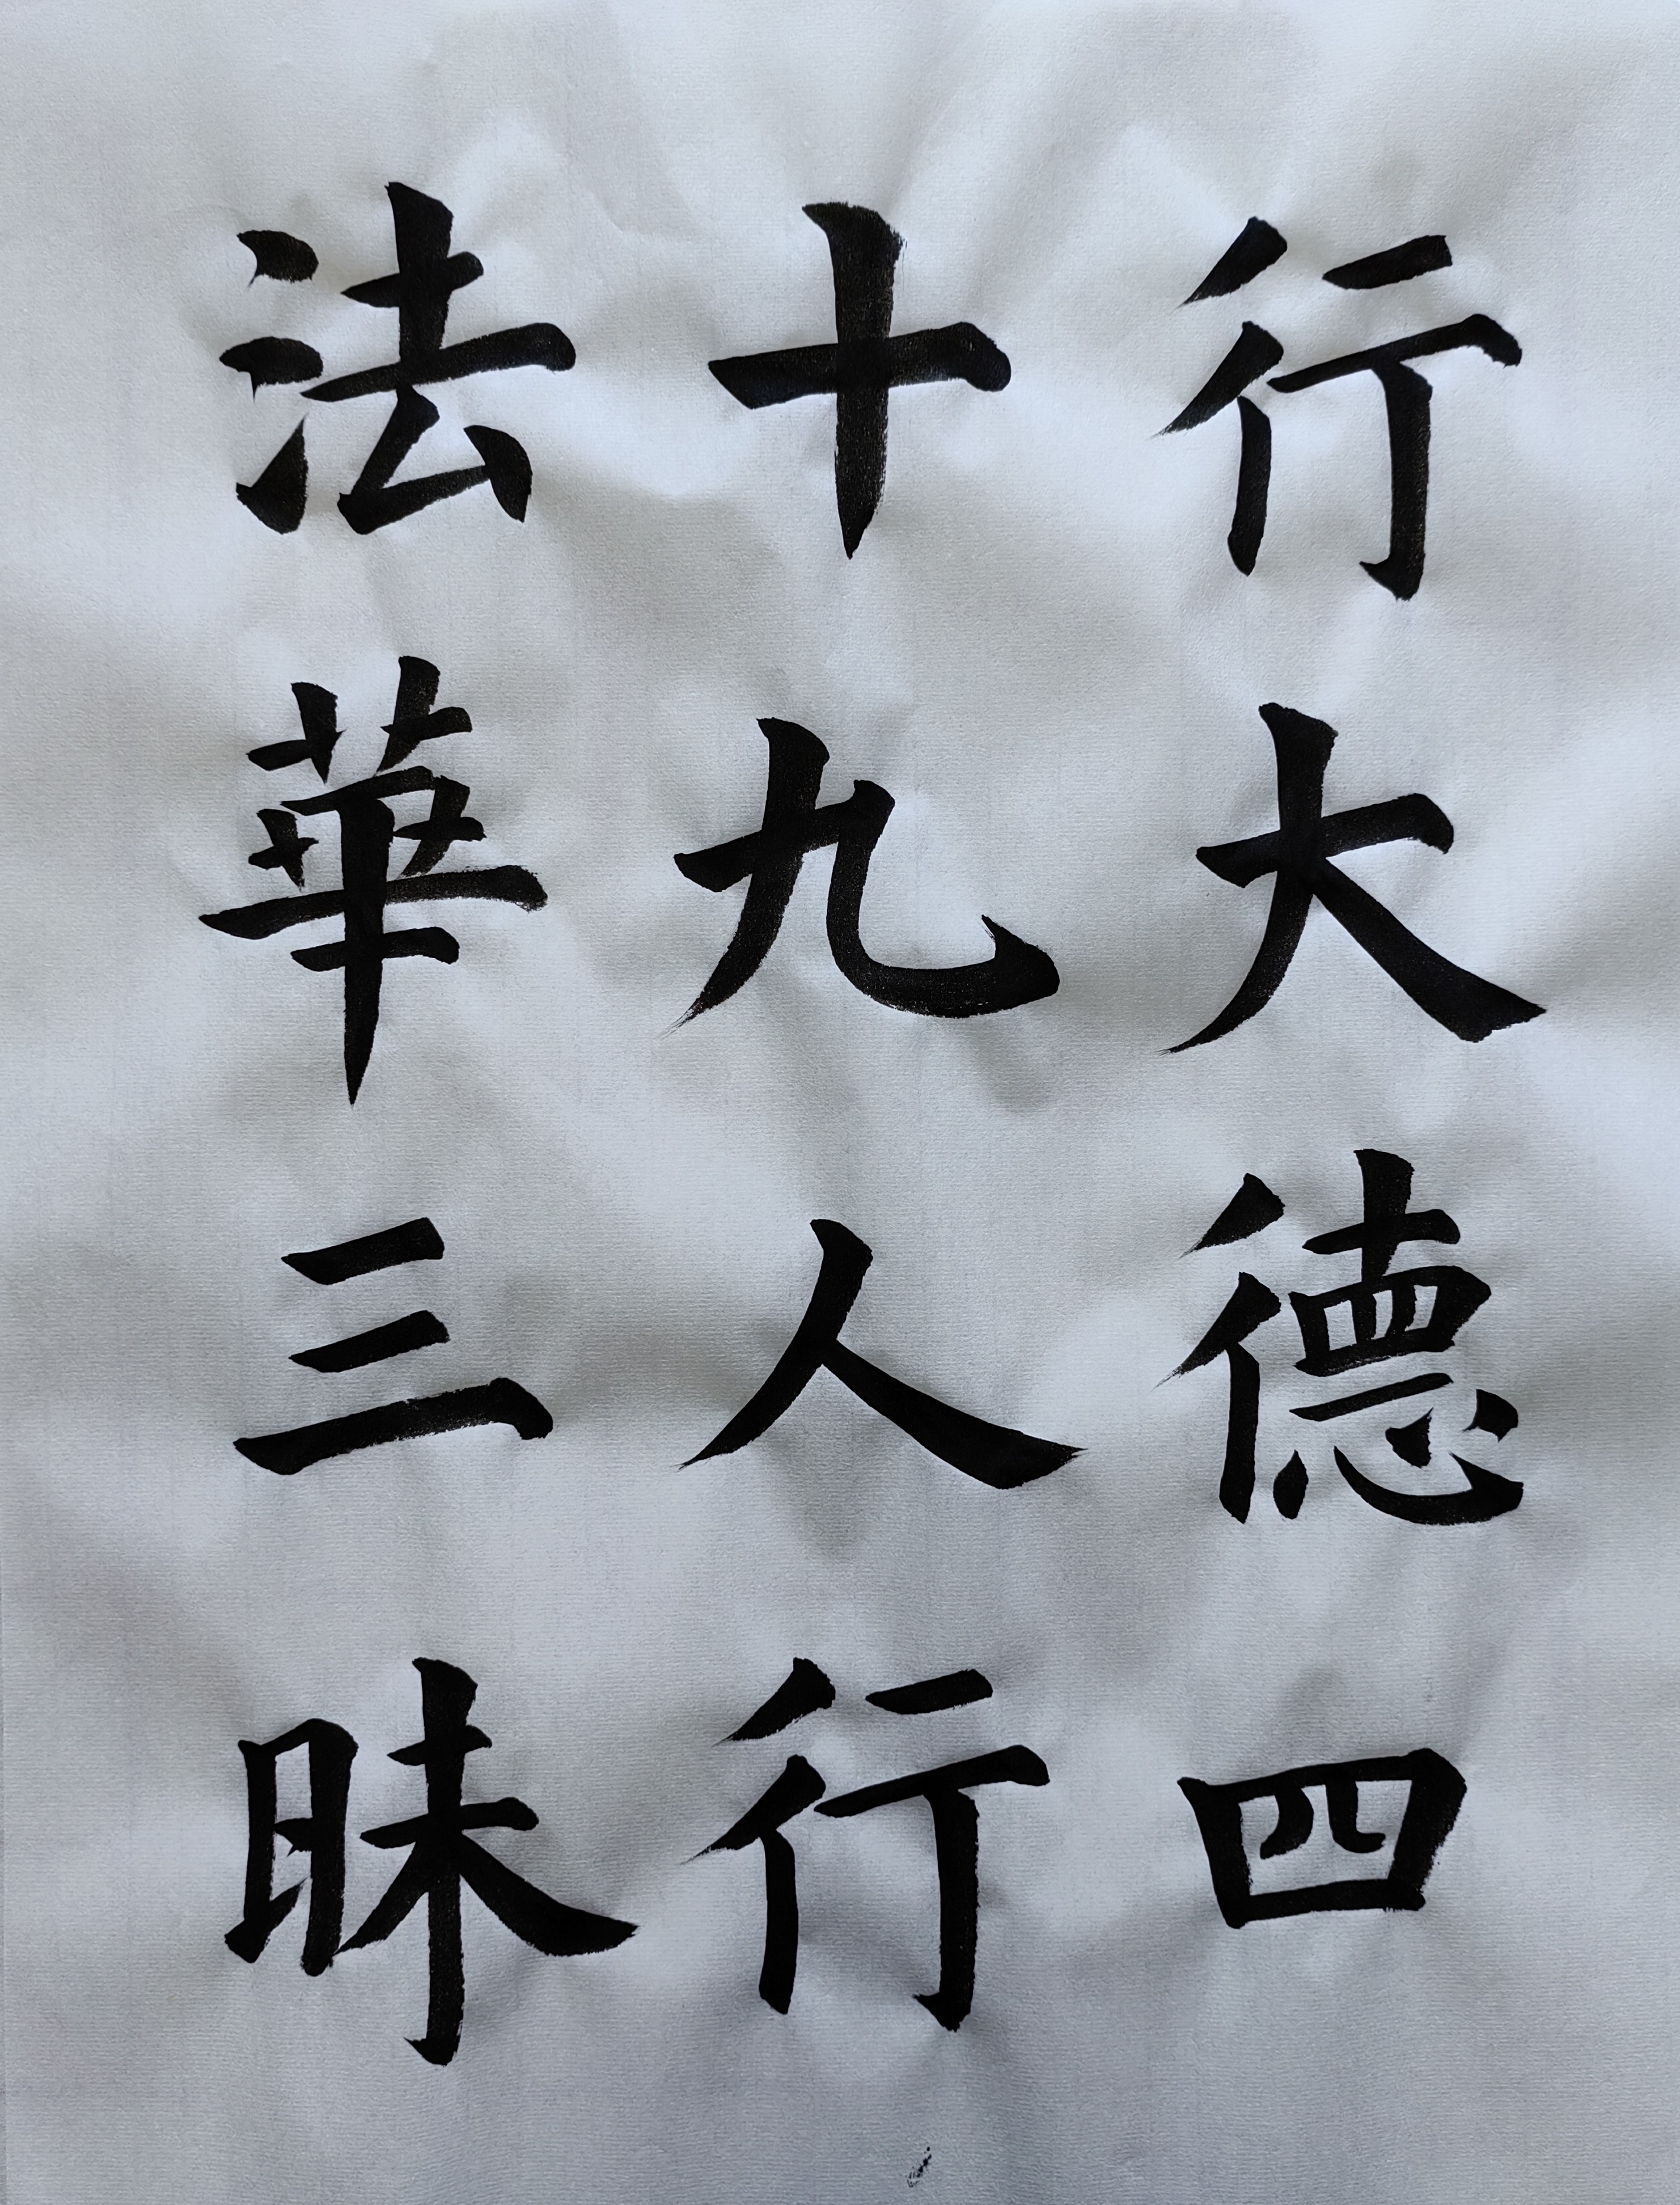 行大德四
十九人行
法華三昧